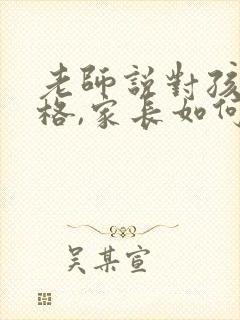 老師說對孩
格,家長如何
吳某宣